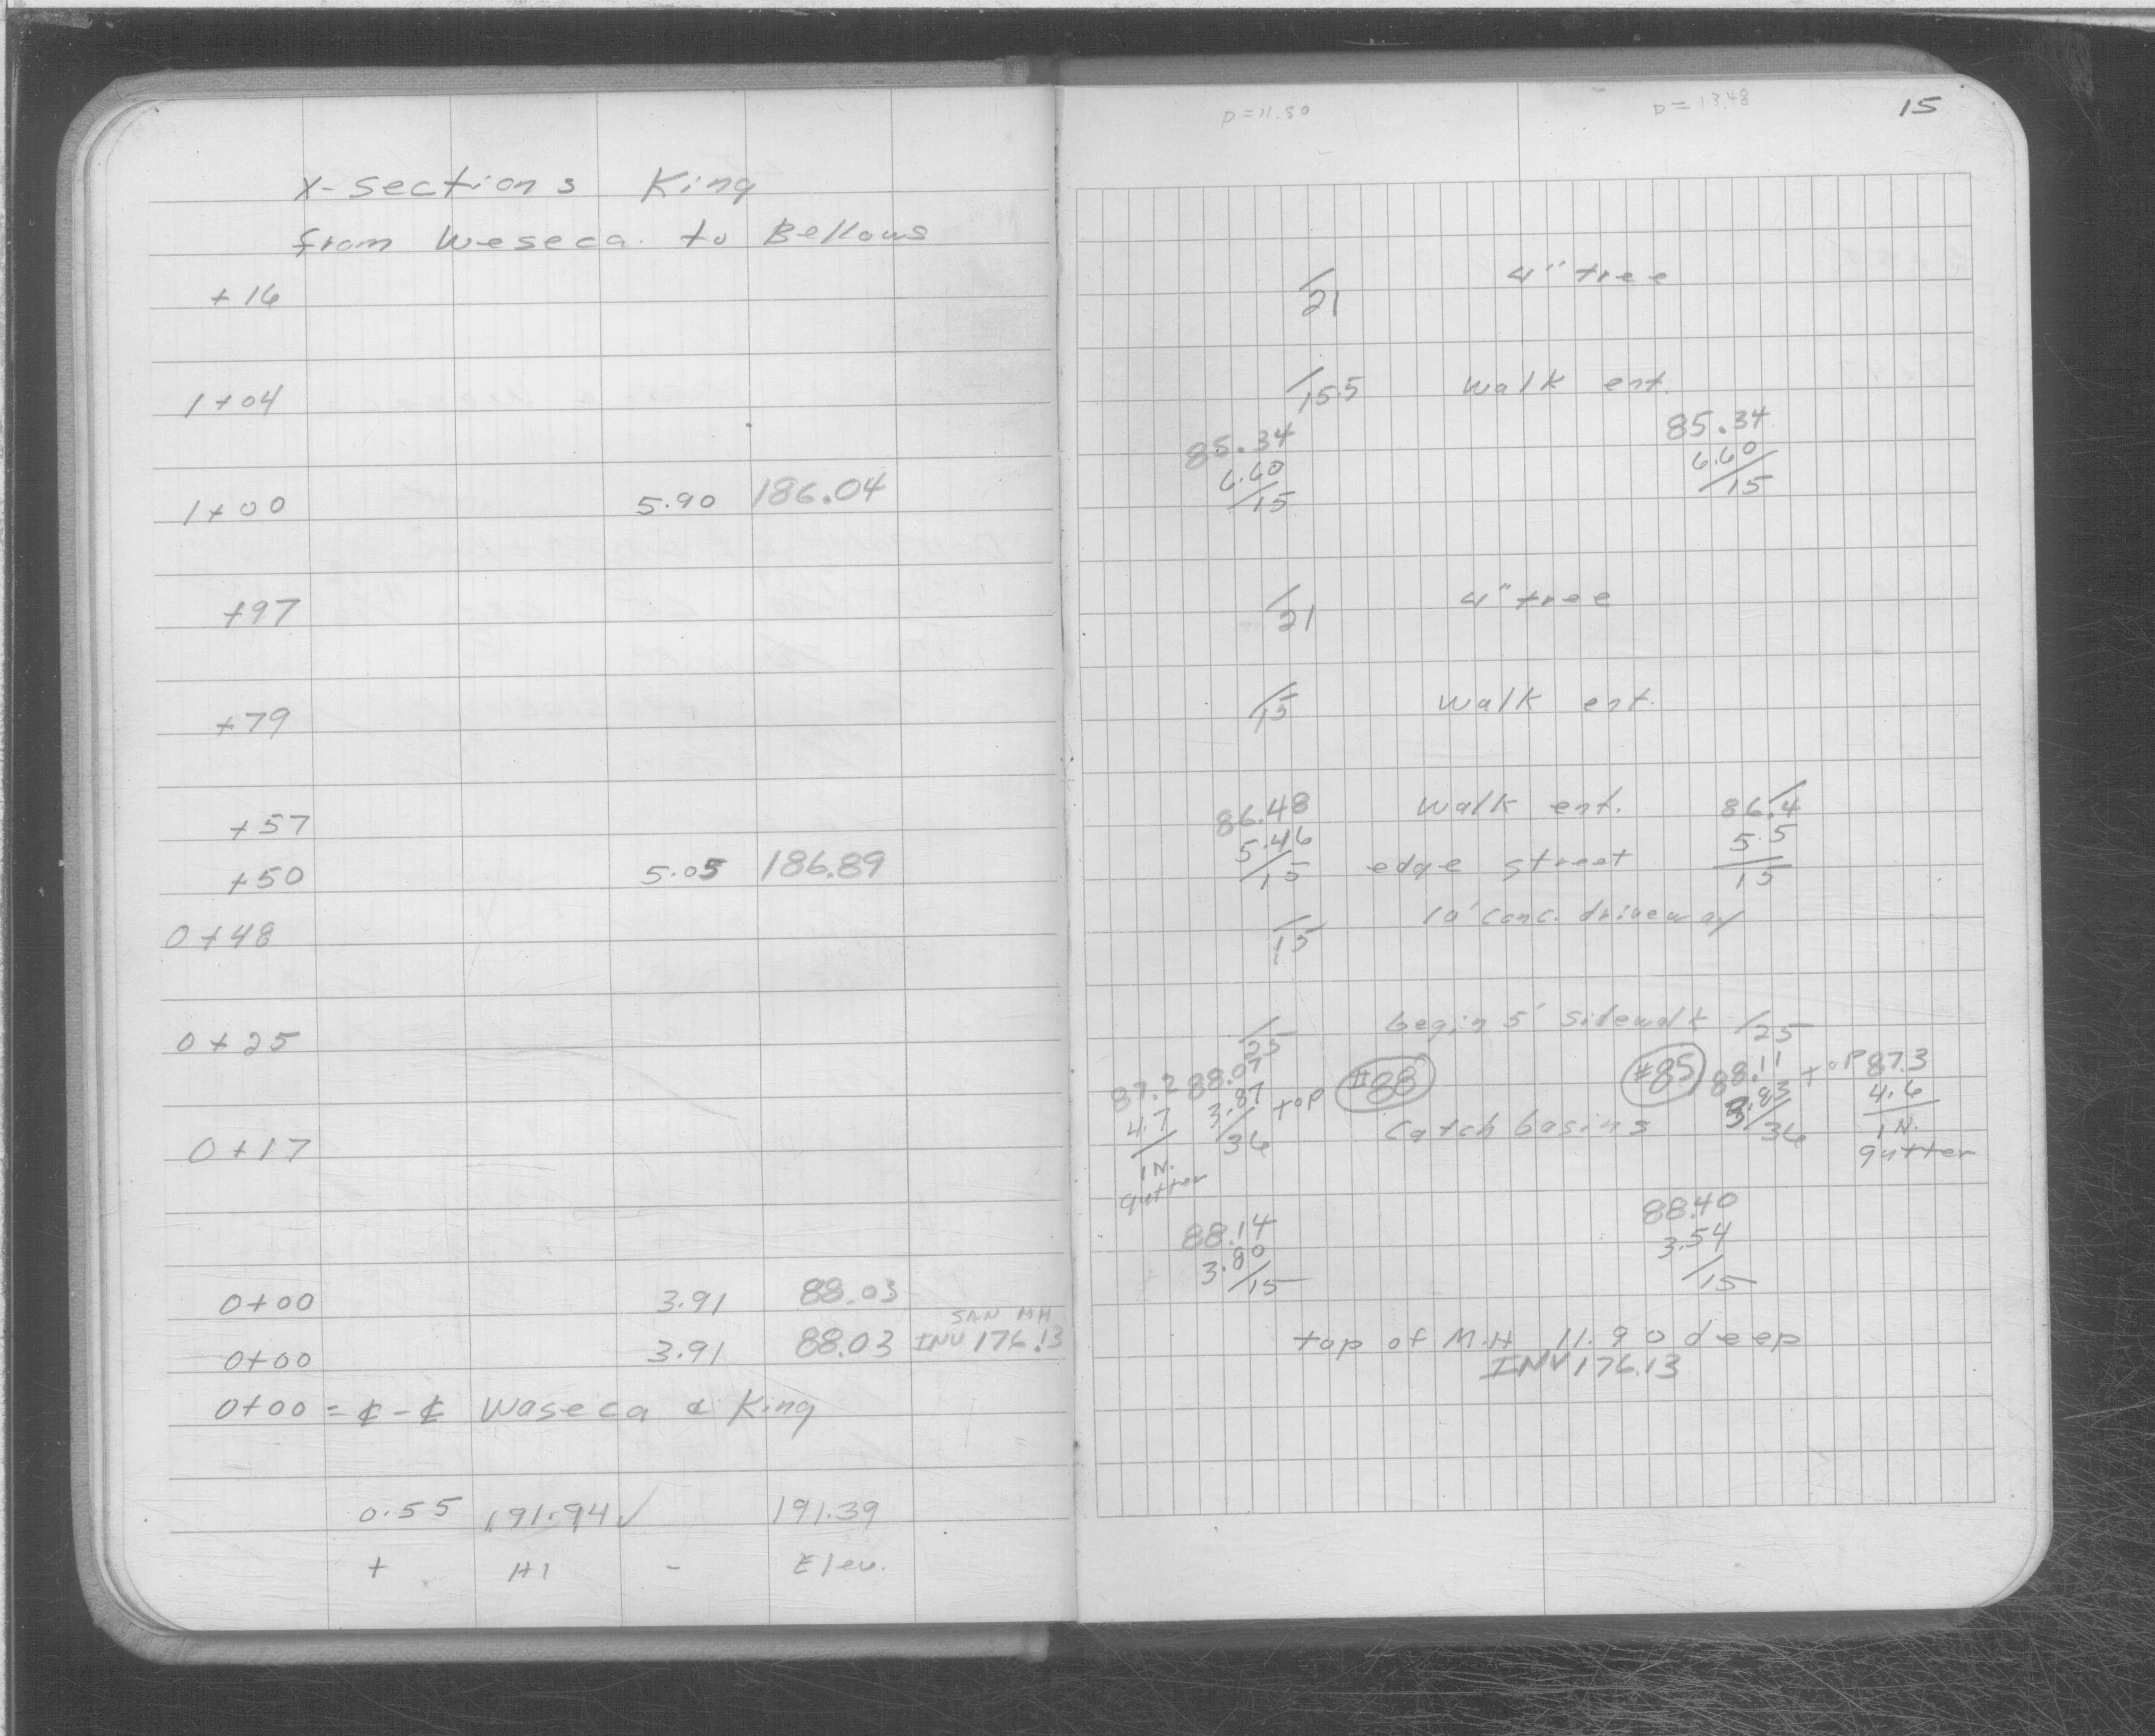 X-sections King
from Weseca. to Bellows
+16
1+04
1+00 5.90 186.04
+97
+79
+57
+50 5.05 186.89
0+48
0+25
0+17
0+00 3.91 88.03
SAN MH
0+00 3.91 88.03 INV 176.13
0+00 = ℄-℄ Waseca & King
0.55 191.94✓ 191.39
+ HI - Elev.
D=11.80 D=13.48 15
/21 4" tree
/15.5 walk ent.
85.34 85.34
6.60 6.60
/15 /15
/21 4" tree
/15 walk ent.
86.48 walk ent. /
5.46 86.4
/15 edge street 5.5
15
/15 10' conc. driveway
/25 begin 5' sidewalk /25
87.2 88.07 #88 #85 88.11 top 87.3
4.7 3.87 top 3.83 4.6
/36 Catch basins /36
IN. IN.
gutter gutter
88.14 88.40
3.80 3.54
/15 /15
top of M.H 11.90 deep
INV 176.13